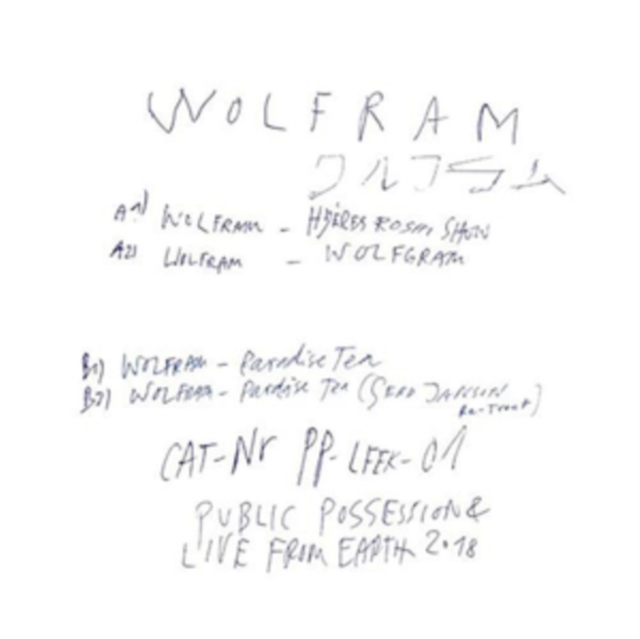 WOLFRAM
A1) WOLFRAM - HYÈRES ROSAI SHOW
A2) WOLFRAM - WOLFGRAM
B1) WOLFRAM - Paradise Tea
B2) WOLFRAM - Pardise Tea (GERD JANSON Re-Treat)
CAT-Nr PP-LFEK-01
PUBLIC POSSESSION &
LIVE FROM EARTH 2018